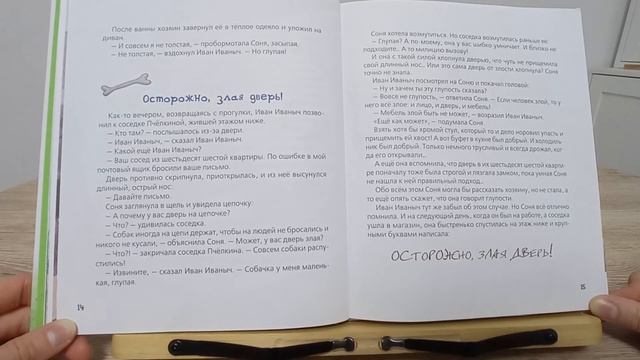 После ванны хозяин завернул её в тёплое одеяло и уложил на
диван.
— И совсем я не толстая, — пробормотала Соня, засыпая.
— Не толстая, — вздохнул Иван Иваныч. — Но глупая!
Осторожно, злая дверь!
Как-то вечером, возвращаясь с прогулки, Иван Иваныч позво-
нил к соседке Пчёлкиной, жившей этажом ниже.
— Кто там? — послышалось из-за двери.
— Иван Иваныч, — сказал Иван Иваныч.
— Какой ещё Иван Иваныч?
— Ваш сосед из шестьдесят шестой квартиры. По ошибке в мой
почтовый ящик бросили ваше письмо.
Дверь противно скрипнула, приоткрылась, и из неё высунулся
длинный, острый нос:
— Давайте письмо.
Соня заглянула в щель и увидела цепочку:
— А почему у вас дверь на цепочке?
— Что? — удивилась соседка.
— Собак иногда на цепи держат, чтобы на людей не бросались и
никого не кусали, — объяснила Соня. — Может, у вас дверь злая?
— Что?! — закричала соседка Пчёлкина. — Совсем собаки распу-
стились!
— Извините, — сказал Иван Иваныч. — Собачка у меня малень-
кая, глупая.
14
Соня хотела возмутиться. Но соседка возмутилась раньше неё:
— Глупая? А по-моему, она у вас шибко умничает. И близко не
подходите.. А то милицию вызову!
И она с такой силой хлопнула дверью, что чуть не прищемила
свой длинный нос.. Или это сама дверь от злости хлопнула? Соня
точно не знала.
Иван Иваныч посмотрел на Соню и покачал головой:
— Ну и зачем ты эту глупость сказала?
— Вовсе не глупость, — ответила Соня. — Если человек злой, то у
него всё злое: и лицо, и дверь, и мебель!
— Мебель злой быть не может, — возразил Иван Иваныч.
«Ещё как может», — подумала Соня.
Взять хотя бы хромой стул, который то и дело норовил упасть и
прищемить ей хвост! А вот буфет в кухне был добрый. И холодиль-
ник был добрый. Только немного трусливый и всегда дрожал, ко-
гда его открывали..
А ещё она вспомнила, что дверь в их шестьдесят шестой кварти-
ре поначалу тоже была строгой и лязгала замком, пока умная Соня
не нашла к ней правильный подход..
Обо всём этом Соня могла бы рассказать хозяину, но не стала, а
то ещё опять скажет, что она говорит глупости.
Иван Иваныч тут же забыл об этом случае. Но Соня всё отлично
помнила. И на следующий день, когда он был на работе, а соседка
ушла в магазин, она быстренько спустилась на этаж ниже и круп-
ными буквами написала:
ОСТОРОЖНО, ЗЛАЯ ДВЕРЬ!
15